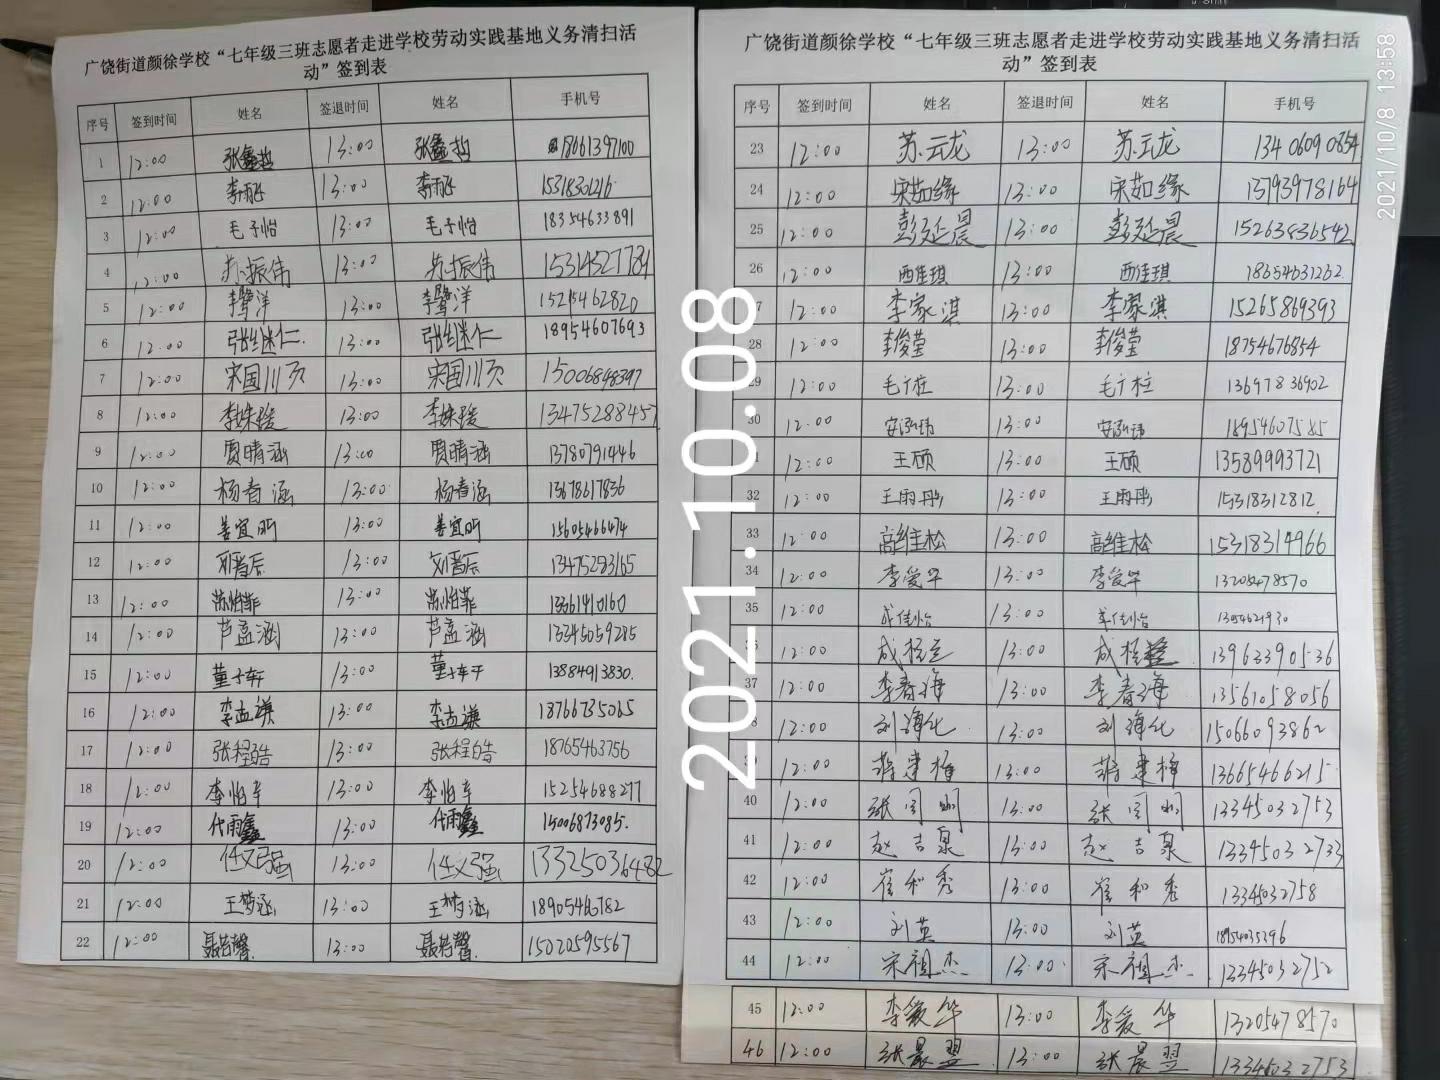 广饶街道颜徐学校“七年级三班志愿者走进学校劳动实践基地义务清扫活
动”签到表
序号 签到时间 姓名 签退时间 姓名 手机号
1 12:00 张鑫哲 13:00 张鑫哲 18661397100
2 12:00 李雨 13:00 李雨 15318301216
3 12:00 毛子怡 13:00 毛子怡 18354633891
4 12:00 苏振伟 13:00 苏振伟 15314527784
5 12:00 李鹭洋 13:00 李鹭洋 15215462820
6 12:00 张继仁 13:00 张继仁 18954607693
7 12:00 宋国川页 13:00 宋国川页 15006848397
8 12:00 李姝璇 13:00 李姝璇 13475288457
9 12:00 贾晴涵 13:00 贾晴涵 13780791446
10 12:00 杨春涵 13:00 杨春涵 13678617836
11 12:00 姜宜昕 13:00 姜宜昕 15605466474
12 12:00 刘晋辰 13:00 刘晋辰 13475293165
13 12:00 苏怡菲 13:00 苏怡菲 13361410160
14 12:00 芦孟涵 13:00 芦孟涵 13345059285
15 12:00 董子轩 13:00 董子轩 13884913830
16 12:00 李孟谦 13:00 李孟谦 18766735065
17 12:00 张程皓 13:00 张程皓 18765463756
18 12:00 李怡 13:00 李怡 15254688277
19 12:00 代雨鑫 13:00 代雨鑫 15006873085
20 12:00 任义强 13:00 任义强 13325036482
21 12:00 王梦涵 13:00 王梦涵 18905466782
22 12:00 聂若馨 13:00 聂若馨 15020595567
广饶街道颜徐学校“七年级三班志愿者走进学校劳动实践基地义务清扫活
动”签到表
序号 签到时间 姓名 签退时间 姓名 手机号
23 12:00 苏云龙 13:00 苏云龙 13406090854
24 12:00 宋茹缘 13:00 宋茹缘 13793978164
25 12:00 彭延晨 13:00 彭延晨 15263836542
26 12:00 西佳琪 13:00 西佳琪 18654631262
7 12:00 李家淇 13:00 李家淇 15265869393
28 12:00 李俊莹 13:00 李俊莹 18754676854
29 12:00 毛广柱 13:00 毛广柱 13697836902
30 12:00 安泓玮 13:00 安泓玮 18954607585
1 12:00 王硕 13:00 王硕 13589993721
32 12:00 王雨彤 13:00 王雨彤 15318312812
33 12:00 高维松 13:00 高维松 15318314966
34 12:00 李爱华 13:00 李爱华 13205478570
35 12:00 成佳怡 13:00 成佳怡 13054621930
36 12:00 成桂 13:00 成桂 13963390536
37 12:00 李春海 13:00 李春海 13561058056
8 12:00 刘海化 13:00 刘海化 15066093862
39 12:00 蒋建梅 13:00 蒋建梅 13665466215
40 12:00 张同 13:00 张同 13345032753
41 12:00 赵吉泉 13:00 赵吉泉 13345032733
42 12:00 崔和秀 13:00 崔和秀 13345032758
43 12:00 刘英 13:00 刘英 18954035296
44 12:00 宋祖杰 13:00 宋祖杰 13345032752
45 12:00 李爱华 13:00 李爱华 13205478570
46 12:00 张晨翌 13:00 张晨翌 13345032753
2021.10.08
2021/10/8 13:58